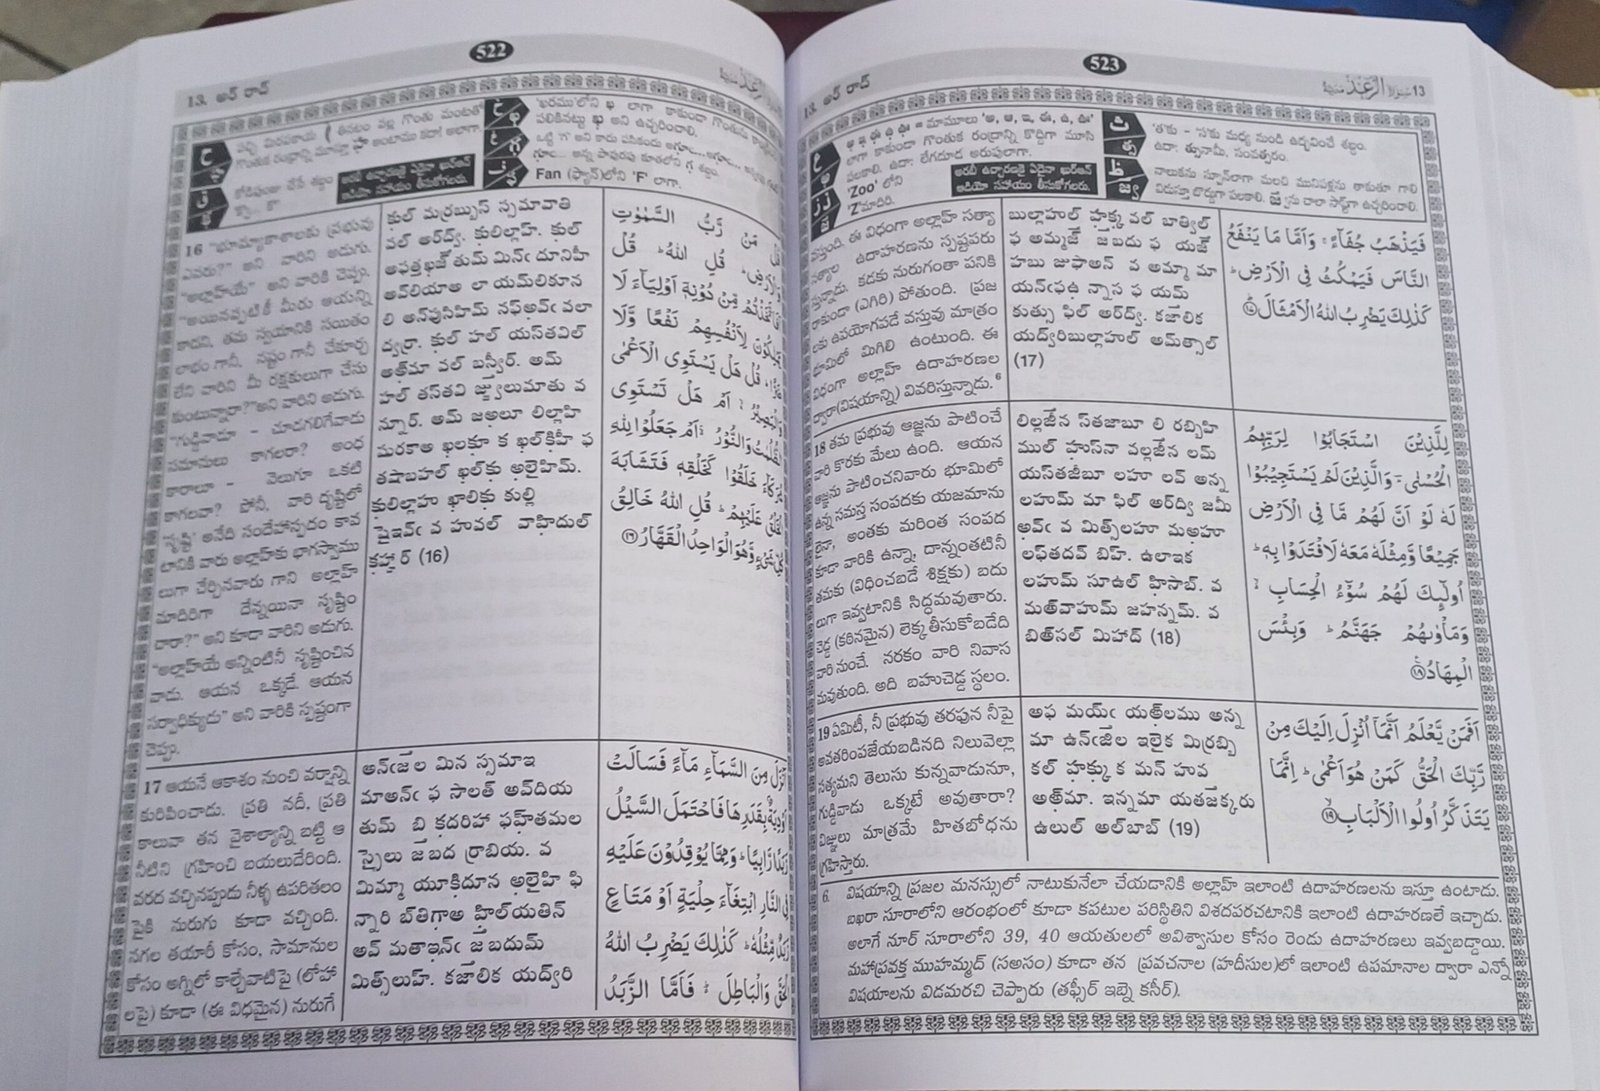 522
13. అర్ రాద్
పచ్చి మిరపకాయ తినటం వల్ల గొంతు మంటతో
గొంతుక రంధ్రాన్ని మూస్తూ హా అంటాము కదా! అలాగా
కోడిపుంజు చేసే శబ్దం
అరబీ ఉచ్చారణకై ఏదైనా ఖుర్ఆన్
ఆడియో సహాయం తీసుకోగలరు.
'ఖరము'లోని ఖ లాగా కాకుండా గొంతును
పలికినట్టు ఖ అని ఉచ్చరించాలి.
ఒట్టి 'గ' అని కాదు పనికిందు అగ్గూ...అగ్గూ...
గూ... అన్న పావురపు కూతలోని గ శబ్దం.
Fan (ఫ్యాన్)లోని 'F' లాగా.
16 "భూమ్యాకాశాలకు ప్రభువు
ఎవరు?" అని వారిని అడుగు.
"అల్లాహ్‌యే" అని వారికి చెప్పు.
"అయినప్పటికీ మీరు ఆయన్ని
కాదని, తమ స్వయానికి సయితం
లాభం గానీ, నష్టం గానీ చేకూర్చ
లేని వారిని మీ రక్షకులుగా చేసు
కుంటున్నారా?"అని వారిని అడుగు.
"గుడ్డివాడూ – చూడగలిగేవాడు
సమానులు కాగలరా? అంధ
కారాలూ – వెలుగూ ఒకటి
కాగలవా? పోనీ, వారి దృష్టిలో
'సృష్టి' అనేది సందేహాస్పదం కావ
టానికి వారు అల్లాహ్‌కు భాగస్వాము
లుగా చేర్చినవారు గాని అల్లాహ్
మాదిరిగా దేన్నయినా సృష్టిం
చారా?" అని కూడా వారిని అడుగు.
"అల్లాహ్‌యే అన్నింటినీ సృష్టించిన
వాడు. ఆయన ఒక్కడే. ఆయన
సర్వాధిక్యుడు" అని వారికి స్పష్టంగా
చెప్పు.
కుల్ మర్రబ్బుస్ సమావాతి
వల్ అర్ద్వి. కులిల్లాహ్. కుల్
అఫత్తఖజ్‌తుమ్ మిన్ఁ దూనిహీ
అవ్‌లియాఅ లా యమ్‌లికూన
లి అన్‌ఫుసిహిమ్ నఫ్అవ్ఁ వలా
ద్వర్రా. కుల్ హల్ యస్తవిల్
అఅ్‌మా వల్ బస్వీర్. అమ్
హల్ తస్తవి జ్జులుమాతు వ
న్నూర్. అమ్ జఅలూ లిల్లాహి
షురకాఅ ఖలకూ క ఖల్‌కిహీ ఫ
తషాబహల్ ఖల్‌కు అలైహిమ్.
కులిల్లాహు ఖాలికు కుల్లి
షైఇవ్ఁ వ హువల్ వాహిదుల్
కహ్హార్ (16)
قُلْ مَنْ رَّبُّ السَّمٰوٰتِ
وَالْاَرْضِ ؕ قُلِ اللهُ ؕ قُلْ
اَفَاتَّخَذْتُمْ مِّنْ دُوْنِهٖۤ اَوْلِيَآءَ لَا
يَمْلِكُوْنَ لِاَنْفُسِهِمْ نَفْعًا وَّلَا
ضَرًّا ؕ قُلْ هَلْ يَسْتَوِى الْاَعْمٰى
وَالْبَصِيْرُ ۙ اَمْ هَلْ تَسْتَوِى
الظُّلُمٰتُ وَالنُّوْرُ ۚ اَمْ جَعَلُوْا لِلّٰهِ
شُرَكَآءَ خَلَقُوْا كَخَلْقِهٖ فَتَشَابَهَ
الْخَلْقُ عَلَيْهِمْ ؕ قُلِ اللهُ خَالِقُ
كُلِّ شَىْءٍ وَّهُوَ الْوَاحِدُ الْقَهَّارُ ﴿١٦﴾
17 ఆయనే ఆకాశం నుంచి వర్షాన్ని
కురిపించాడు. ప్రతి నదీ, ప్రతి
కాలువా తన వైశాల్యాన్ని బట్టి ఆ
నీటిని గ్రహించి బయలుదేరింది.
వరద వచ్చినప్పుడు నీళ్ళ ఉపరితలం
పైకి నురుగు కూడా వచ్చింది.
నగల తయారీ కోసం, సామానుల
కోసం అగ్నిలో కాల్చేవాటిపై (లోహా
లపై) కూడా (ఈ విధమైన) నురుగే
అన్ఁజల మిన స్సమాఇ
మాఅన్ఁ ఫ సాలత్ అవ్‌దియ
తుమ్ బి కదరిహా ఫహ్‌తమల
స్సైలు జబద ర్రాబియ. వ
మిమ్మా యూకిదూన అలైహి ఫి
న్నారి బ్‌తిగాఅ హిల్‌యతిన్
అవ్ మతాఇన్ఁ జబదుమ్
మిత్స్‌లుహ్. కజాలిక యద్వ్‌రి
اَنْزَلَ مِنَ السَّمَآءِ مَآءً فَسَالَتْ
اَوْدِيَةٌۢ بِقَدَرِهَا فَاحْتَمَلَ السَّيْلُ
زَبَدًا رَّابِيًا ؕ وَمِمَّا يُوْقِدُوْنَ عَلَيْهِ
فِى النَّارِ ابْتِغَآءَ حِلْيَةٍ اَوْ مَتَاعٍ
زَبَدٌ مِّثْلُهٗ ؕ كَذٰلِكَ يَضْرِبُ اللهُ
الْحَقَّ وَالْبَاطِلَ ؕ فَاَمَّا الزَّبَدُ
523
13. అర్ రాద్
سورة الرعد 13
= మామూలు 'అ, ఆ, ఇ, ఈ, ఉ, ఊ'
లాగా కాకుండా గొంతుక రంధ్రాన్ని కొద్దిగా మూసి
పలకాలి. ఉదా: లేగదూడ అరుపులాగా.
'Zoo' లోని
'Z'మాదిరి.
అరబీ ఉచ్చారణకై ఏదైనా ఖుర్ఆన్
ఆడియో సహాయం తీసుకోగలరు.
'త'కు – 'స'కు మధ్య నుండి ఉద్భవించే శబ్దం.
ఉదా: త్సునామీ, సంవత్సరం.
నాలుకను స్పూన్‌లాగా మలచి మునిపళ్లను తాకుతూ గాలి
విడుస్తూ బొద్దుగా పలకాలి. జ్వను చాలా సాఫ్ట్‌గా ఉచ్చరించాలి.
వస్తుంది. ఈ విధంగా అల్లాహ్ సత్యా
సత్యాల ఉదాహరణను స్పష్టపరు
స్తున్నాడు. కడకు నురుగంతా పనికి
రాకుండా (ఎగిరి) పోతుంది. ప్రజ
లకు ఉపయోగపడే వస్తువు మాత్రం
భూమిలో మిగిలి ఉంటుంది. ఈ
విధంగా అల్లాహ్ ఉదాహరణల
ద్వారా(విషయాన్ని) వివరిస్తున్నాడు.⁶
బుల్లాహుల్ హక్క వల్ బాత్విల్
ఫ అమ్మజ్ జబదు ఫ యజ్
హబు జుఫాఅన్ వ అమ్మా మా
యన్ఁఫఉ న్నాస ఫ యమ్
కుత్సు ఫిల్ అర్ద్వి. కజాలిక
యద్వ్‌రిబుల్లాహుల్ అమ్‌త్సాల్
(17)
فَيَذْهَبُ جُفَآءً ۚ وَاَمَّا مَا يَنْفَعُ
النَّاسَ فَيَمْكُثُ فِى الْاَرْضِ ؕ
كَذٰلِكَ يَضْرِبُ اللهُ الْاَمْثَالَ ﴿١٧﴾
18 తమ ప్రభువు ఆజ్ఞను పాటించే
వారి కొరకు మేలు ఉంది. ఆయన
ఆజ్ఞను పాటించనివారు భూమిలో
ఉన్న సమస్త సంపదకు యజమాను
లైనా, అంతకు మరింత సంపద
కూడా వారికి ఉన్నా, దాన్నంతటినీ
తమకు (విధించబడే శిక్షకు) బదు
లుగా ఇవ్వటానికి సిద్ధమవుతారు.
చెడ్డ (కఠినమైన) లెక్కతీసుకోబడేది
వారి నుంచే. నరకం వారి నివాస
మవుతుంది. అది బహుచెడ్డ స్థలం.
లిల్లజీన స్‌తజాబూ లి రబ్బిహి
ముల్ హుస్‌నా వల్లజీన లమ్
యస్‌తజీబూ లహూ లవ్ అన్న
లహుమ్ మా ఫిల్ అర్ద్వి జమీ
అవ్ఁ వ మిత్స్‌లహూ మఅహూ
లఫ్‌తదవ్ బిహ్. ఉలాఇక
లహుమ్ సూఉల్ హిసాబ్. వ
మఅ్‌వాహుమ్ జహన్నమ్. వ
బిఅ్‌సల్ మిహాద్ (18)
لِلَّذِيْنَ اسْتَجَابُوْا لِرَبِّهِمُ
الْحُسْنٰى ؕ وَالَّذِيْنَ لَمْ يَسْتَجِيْبُوْا
لَهٗ لَوْ اَنَّ لَهُمْ مَّا فِى الْاَرْضِ
جَمِيْعًا وَّمِثْلَهٗ مَعَهٗ لَافْتَدَوْا بِهٖ ؕ
اُولٰٓئِكَ لَهُمْ سُوْٓءُ الْحِسَابِ ۙ
وَمَاْوٰىهُمْ جَهَنَّمُ ؕ وَبِئْسَ
الْمِهَادُ ﴿١٨﴾
19 ఏమిటీ, నీ ప్రభువు తరఫున నీపై
అవతరింపజేయబడినది నిలువెల్లా
సత్యమని తెలుసు కున్నవాడునూ,
గుడ్డివాడు ఒక్కటే అవుతారా?
విజ్ఞులు మాత్రమే హితబోధను
గ్రహిస్తారు.
అఫ మయ్ఁ యఅ్‌లము అన్న
మా ఉన్ఁజిల ఇలైక మిర్రబ్బి
కల్ హక్కు క మన్ హువ
అఅ్‌మా. ఇన్నమా యతజక్కరు
ఉలుల్ అల్‌బాబ్ (19)
اَفَمَنْ يَّعْلَمُ اَنَّمَاۤ اُنْزِلَ اِلَيْكَ مِنْ
رَّبِّكَ الْحَقُّ كَمَنْ هُوَ اَعْمٰى ؕ اِنَّمَا
يَتَذَكَّرُ اُولُوا الْاَلْبَابِ ﴿١٩﴾
6. విషయాన్ని ప్రజల మనస్సులో నాటుకునేలా చేయడానికి అల్లాహ్ ఇలాంటి ఉదాహరణలను ఇస్తూ ఉంటాడు.
బఖరా సూరాలోని ఆరంభంలో కూడా కపటుల పరిస్థితిని విశదపరచటానికి ఇలాంటి ఉదాహరణలే ఇచ్చాడు.
అలాగే నూర్ సూరాలోని 39, 40 ఆయతులలో అవిశ్వాసుల కోసం రెండు ఉదాహరణలు ఇవ్వబడ్డాయి.
మహాప్రవక్త ముహమ్మద్ (సఅసం) కూడా తన ప్రవచనాల (హదీసుల)లో ఇలాంటి ఉపమానాల ద్వారా ఎన్నో
విషయాలను విడమరచి చెప్పారు (తఫ్సీర్ ఇబ్నె కసీర్).